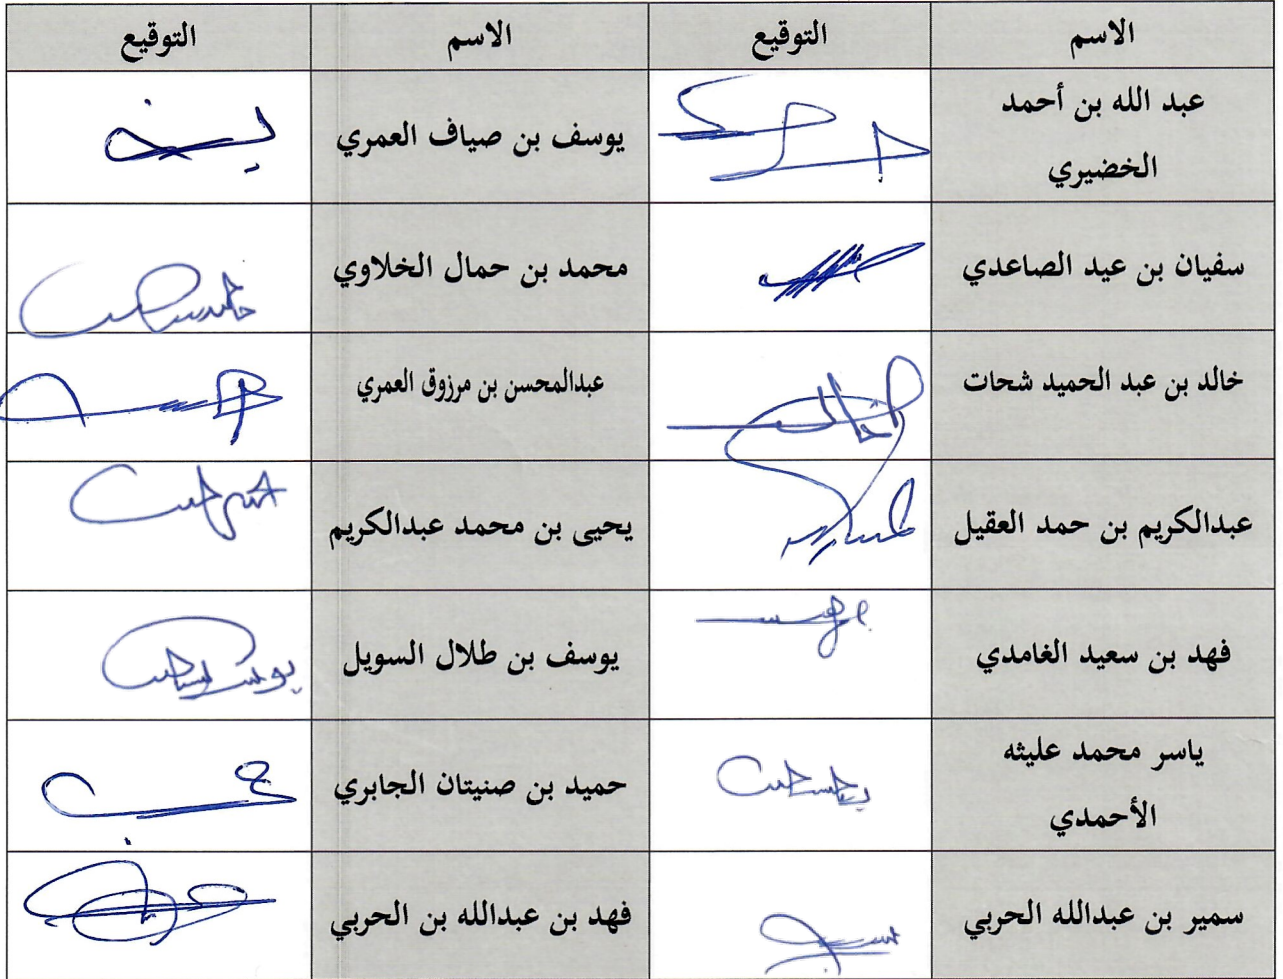 الاسم التوقيع الاسم التوقيع
عبد الله بن أحمد
الخضيري
يوسف بن صياف العمري
سفيان بن عيد الصاعدي
محمد بن حمال الخلاوي
خالد بن عبد الحميد شحات
عبدالمحسن بن مرزوق العمري
عبدالكريم بن حمد العقيل
يحيى بن محمد عبدالكريم
فهد بن سعيد الغامدي
يوسف بن طلال السويل
ياسر محمد عليثه
الأحمدي
حميد بن صنيتان الجابري
سمير بن عبدالله الحربي
فهد بن عبدالله بن الحربي